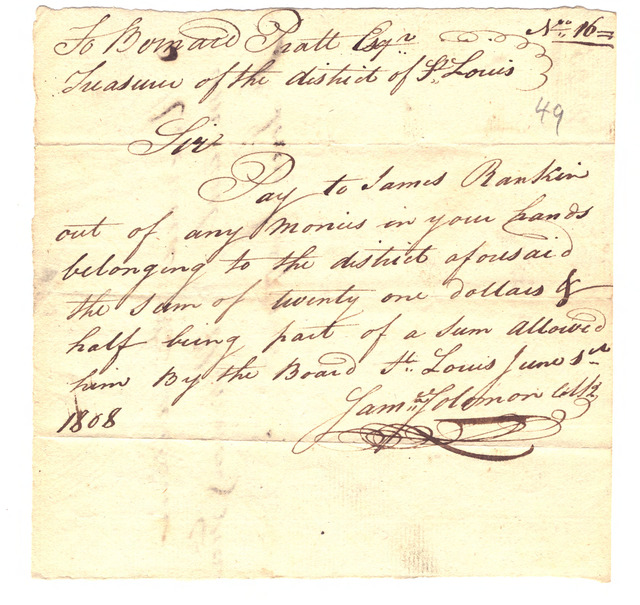 No. 16
To Bernard Pratt Esqr
Treasurer of the district of St. Louis
49
Sir
Pay to James Rankin
out of any monies in your hands
belonging to the district aforesaid
the sum of twenty one dollars &
half being part of a sum allowed
him By the Board St. Louis June 1st
1808
Saml. Solomon Clk